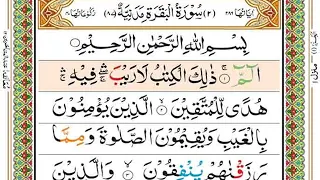 (٢) سُوْرَةُ الْبَقَرَةِ مَدَنِيَّةٌ (٨٧)
بِسْمِ اللّٰهِ الرَّحْمٰنِ الرَّحِيْمِ
الٓمّٓ ۚ ذٰلِكَ الْكِتٰبُ لَا رَيْبَ ۛ فِيْهِ ۛ
هُدًى لِّلْمُتَّقِيْنَ ۙ الَّذِيْنَ يُؤْمِنُوْنَ
بِالْغَيْبِ وَيُقِيْمُوْنَ الصَّلٰوةَ وَمِمَّا
رَزَقْنٰهُمْ يُنْفِقُوْنَ ۙ وَالَّذِيْنَ